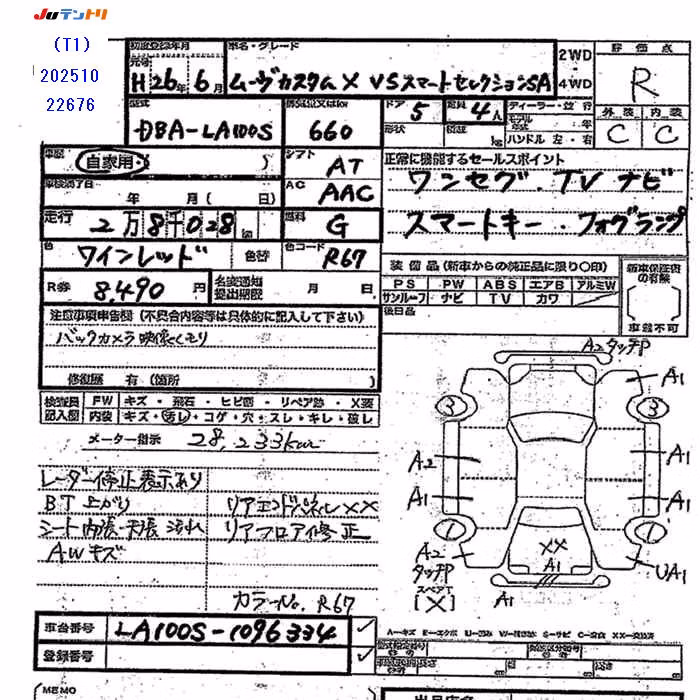 Juテントリ
(T1)
202510
22676
初度登録年月 車名・グレード 2WD 評価点
元号 H 26年 6月 ムーヴカスタム X VSスマートセレクションSA 4WD R
型式 排気量又はkw ドア 5 定員 4人 ディーラー・並行 外装 内装
DBA-LA100S 660 形状 積載 kg モデル年式 年 C C
ハンドル 左・右
車歴 自家用・( ) シフト AT 正常に機能するセールスポイント
車検満了日 年 月 ( 日) AC AAC ワンセグ・TV ナビ
走行 2万8千028 km 燃料 G スマートキー・フォグランプ
色 ワインレッド 色替 色コード R67
装備品(新車からの純正品に限り○印) 新車保証書の有無
R券 8,490円 名変通知提出期限 月 日
PS PW ABS エアB アルミW
サンルーフ ナビ TV カワ
後日品
車載不可
注意事項申告欄(不具合内容等は具体的に記入して下さい)
バックカメラ映像くもり
修復歴 有(箇所 )
A2タッチP
A1
検査員記入欄 FW キズ・飛石・ヒビ割・リペア跡・X要
内装 キズ・汚レ・コゲ・穴・スレ・キレ・破レ
3 3
メーター指示 28,233km
A2 A1
レーダー停止表示あり
A1 A1
BT上がり リアエンドパネルXX
シート内張天張汚れ リアフロア修正
1 1
AWキズ
XX
A1
A2
タッチP
UA1
スペアT
[X]
A1
カラーNo. R67
車台番号 LA100S-1096334 ✓
A-キズ E-エクボ U-凹み W-補修跡 S-サビ C-腐食 XX-交換済
登録番号 ✓
長さ cm
(MEMO
出品店名